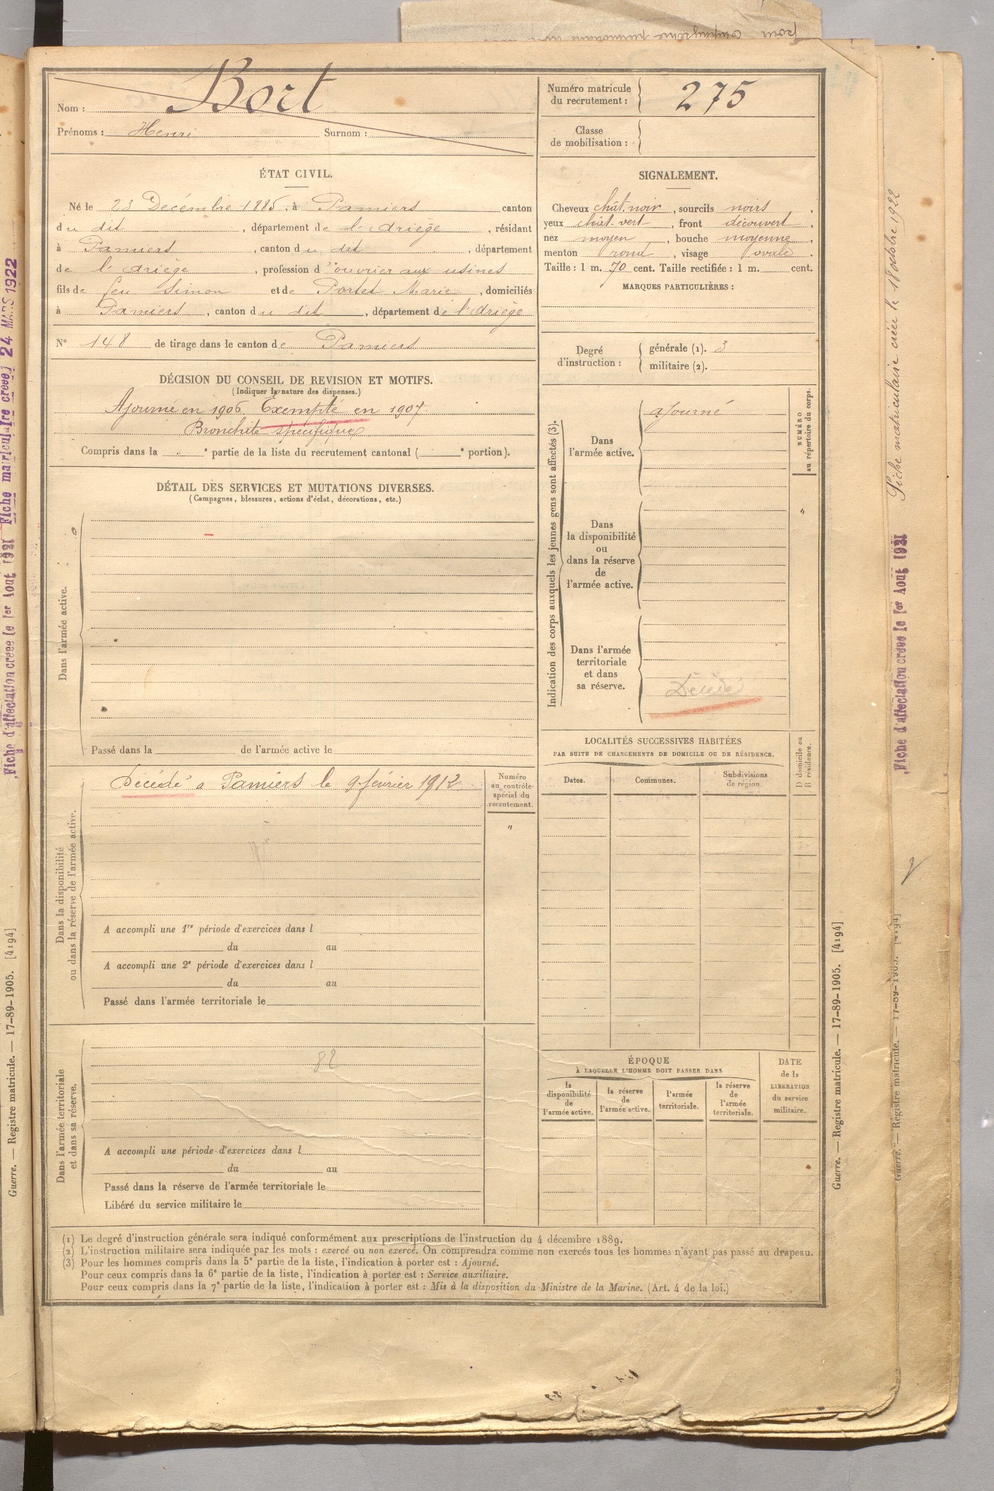 Nom : Bort
Prénoms : Henri Surnom :
Numéro matricule du recrutement : 275
Classe de mobilisation :
ÉTAT CIVIL.
Né le 23 Décembre 1885, à Pamiers canton
du dit, département de l'Ariège, résidant
à Pamiers, canton du dit, département
de l'Ariège, profession d'ouvrier aux usines
fils de feu Simon et de Portet Marie, domiciliés
à Pamiers, canton du dit, département de l'Ariège
N° 148 de tirage dans le canton de Pamiers
SIGNALEMENT.
Cheveux chât. noir, sourcils noirs,
yeux chât. vert, front découvert,
nez moyen, bouche moyenne,
menton rond, visage ovale.
Taille : 1 m. 70 cent. Taille rectifiée : 1 m. cent.
MARQUES PARTICULIÈRES :
Degré d'instruction : générale (1). 3
militaire (2).
DÉCISION DU CONSEIL DE REVISION ET MOTIFS.
(Indiquer la nature des dispenses.)
Ajourné en 1906 Exempté en 1907
Bronchite spécifique
Compris dans la e partie de la liste du recrutement cantonal ( e portion).
DÉTAIL DES SERVICES ET MUTATIONS DIVERSES.
(Campagnes, blessures, actions d'éclat, décorations, etc.)
Dans l'armée active.
Passé dans la de l'armée active le
Indication des corps auxquels les jeunes gens sont affectés (3).
Dans l'armée active.
ajourné
NUMÉRO au répertoire du corps.
"
Dans la disponibilité ou dans la réserve de l'armée active.
Dans l'armée territoriale et dans sa réserve.
Décédé
Dans la disponibilité ou dans la réserve de l'armée active.
Décédé à Pamiers le 9 février 1912
Numéro au contrôle spécial du recrutement.
"
A accompli une 1re période d'exercices dans l
du au
A accompli une 2e période d'exercices dans l
du au
Passé dans l'armée territoriale le
LOCALITÉS SUCCESSIVES HABITÉES
PAR SUITE DE CHANGEMENTS DE DOMICILE OU DE RÉSIDENCE.
Dates. Communes. Subdivisions de région. D domicile ou R résidence.
Dans l'armée territoriale et dans sa réserve.
82
A accompli une période d'exercices dans l
du au
Passé dans la réserve de l'armée territoriale le
Libéré du service militaire le
ÉPOQUE
À LAQUELLE L'HOMME DOIT PASSER DANS
la disponibilité de l'armée active. la réserve de l'armée active. l'armée territoriale. la réserve de l'armée territoriale.
DATE de la LIBÉRATION du service militaire.
(1) Le degré d'instruction générale sera indiqué conformément aux prescriptions de l'instruction du 4 décembre 1889.
(2) L'instruction militaire sera indiquée par les mots : exercé ou non exercé. On comprendra comme non exercés tous les hommes n'ayant pas passé au drapeau.
(3) Pour les hommes compris dans la 5e partie de la liste, l'indication à porter est : Ajourné.
Pour ceux compris dans la 6e partie de la liste, l'indication à porter est : Service auxiliaire.
Pour ceux compris dans la 7e partie de la liste, l'indication à porter est : Mis à la disposition du Ministre de la Marine. (Art. 4 de la loi.)
Guerre. — Registre matricule. — 17-89-1905. [4194]
Guerre. — Registre matricule. — 17-89-1905. [4194]
Guerre. — Registre matricule. — 17-89-1905. [4194]
Fiche d'affectation créée le 1er Août 1921 Fiche matriculaire créée 24 MARS 1922
Fiche d'affectation créée le 1er Août 1921
Fiche matriculaire créée le 18 octobre 1922